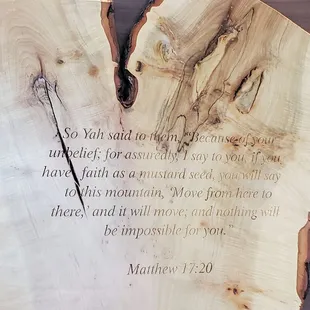 So Yah said to them, "Because of your
unbelief; for assuredly, I say to you, if you
have faith as a mustard seed, you will say
to this mountain, 'Move from here to
there,' and it will move; and nothing will
be impossible for you."
Matthew 17:20